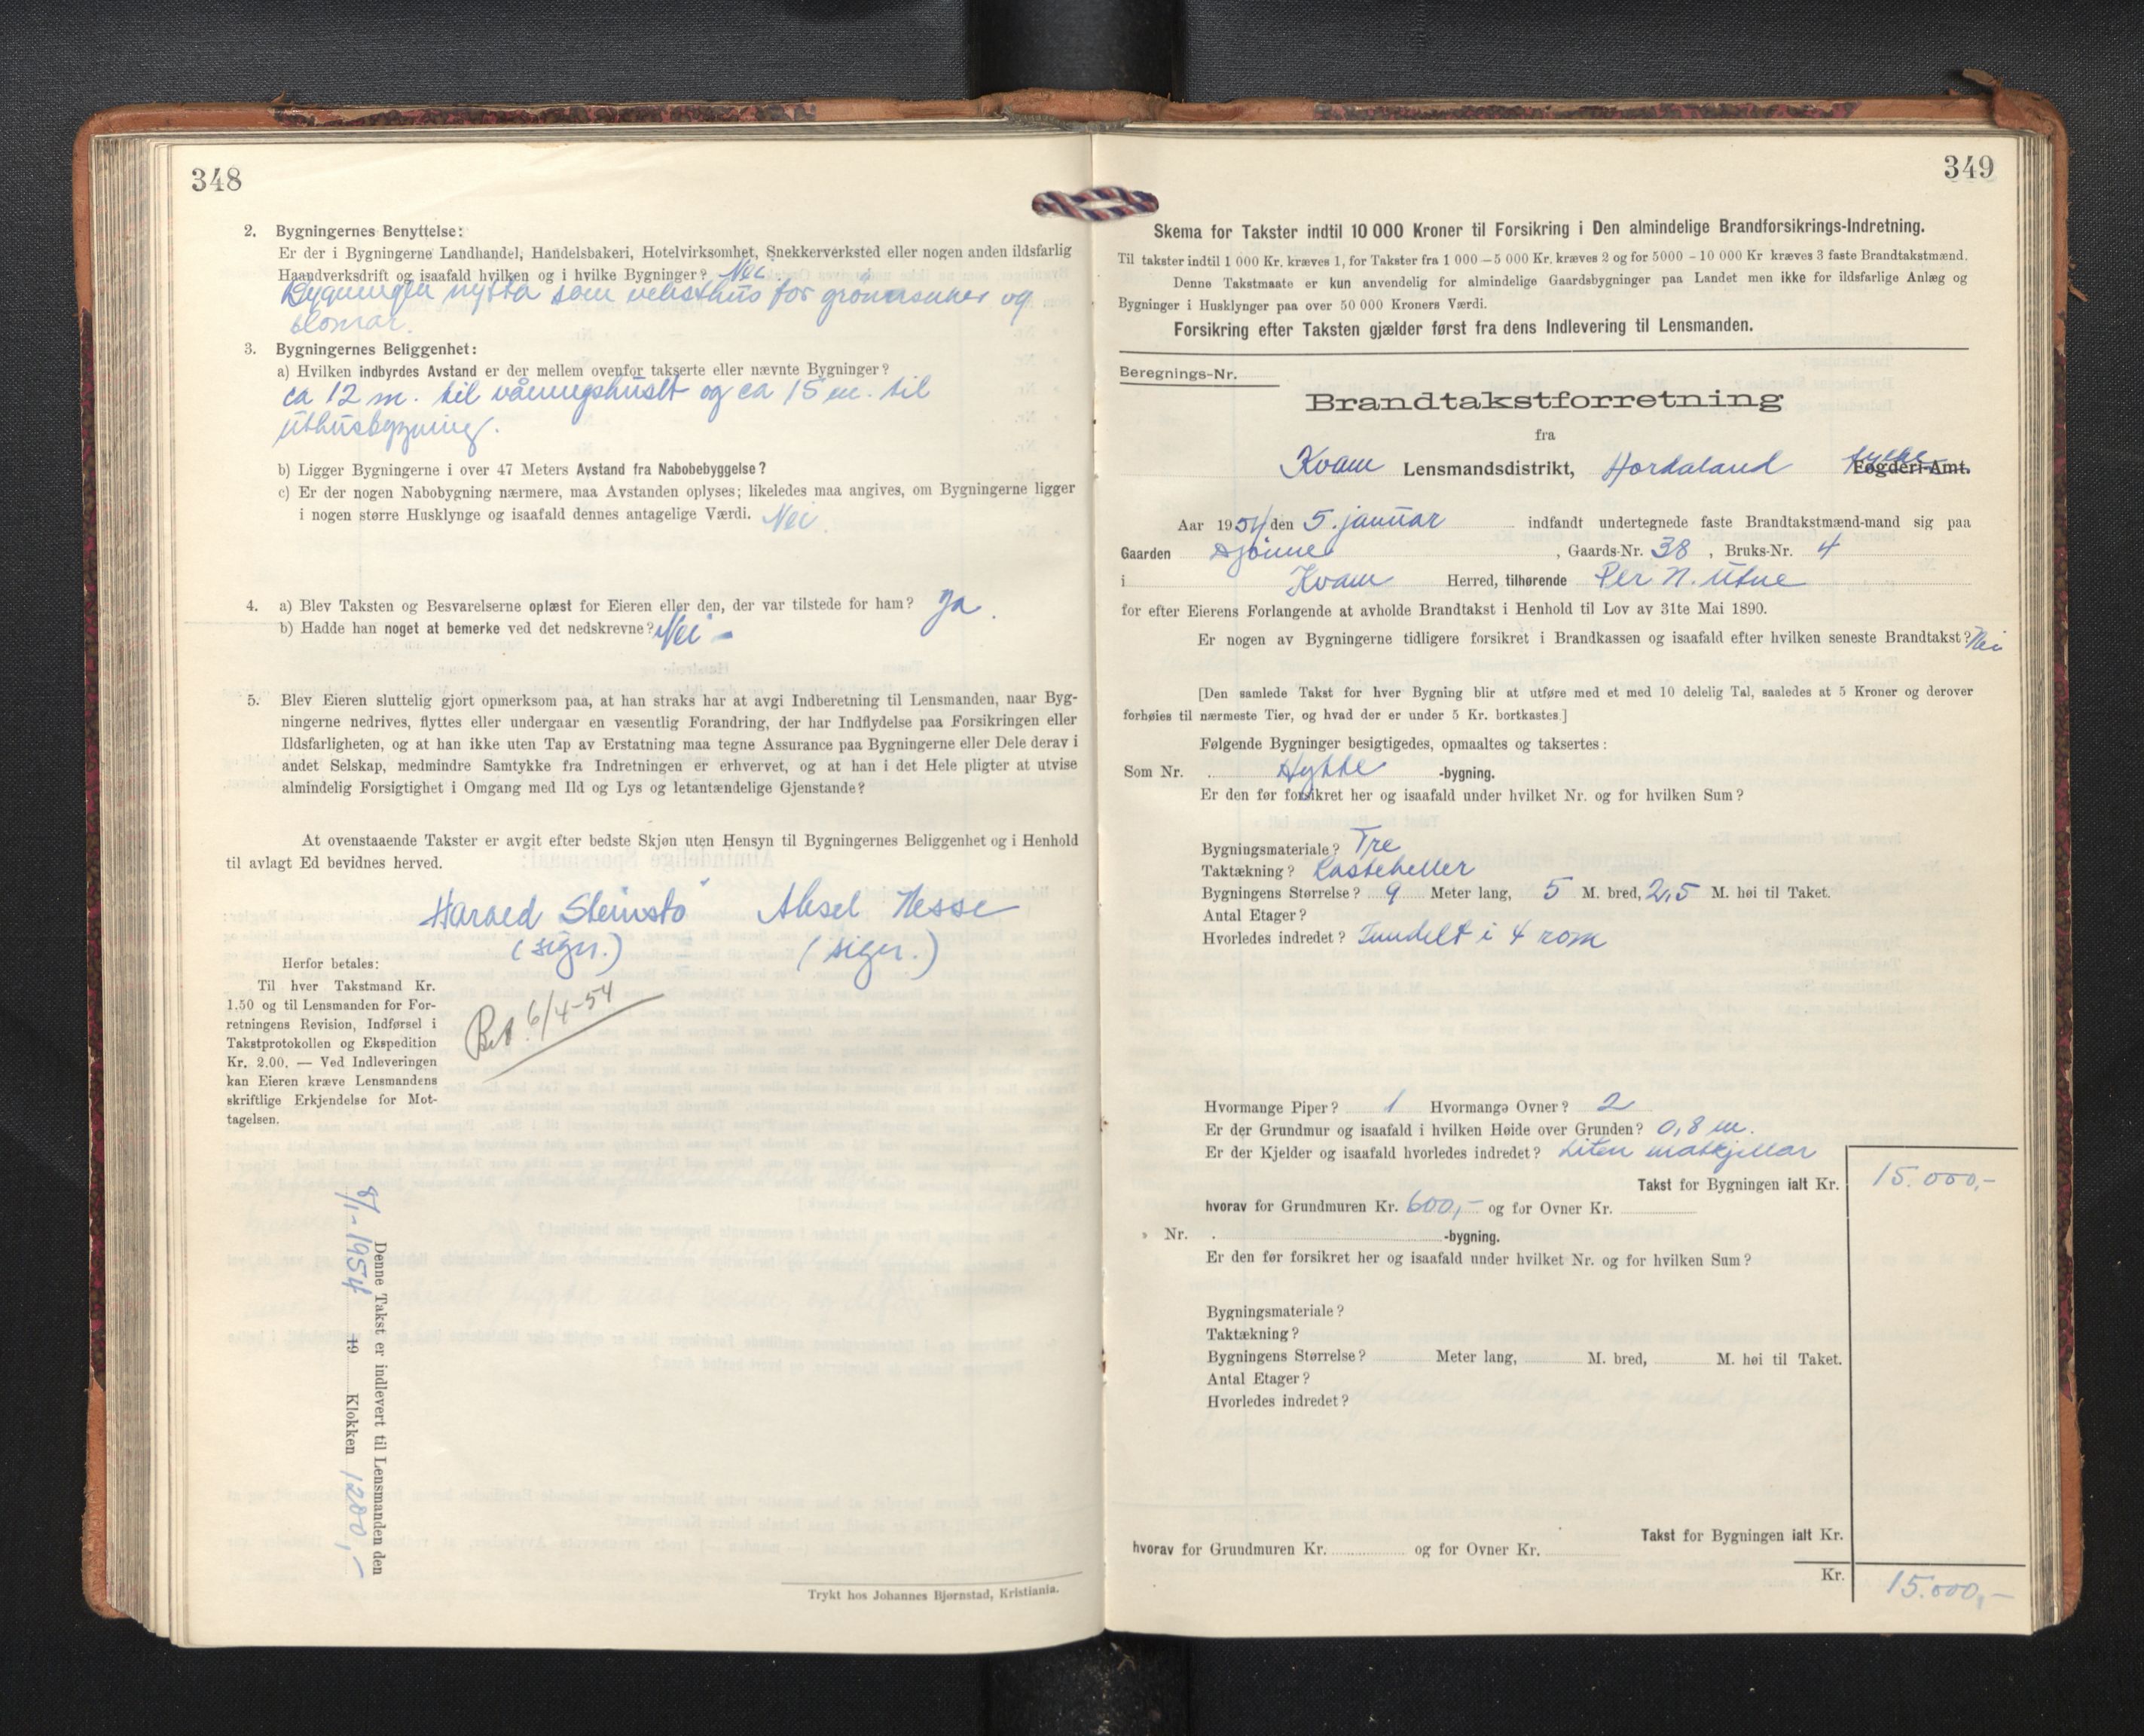 348
2. Bygningernes Benyttelse:
Er der i Bygningerne Landhandel, Handelsbakeri, Hotelvirksomhet, Snekkerverksted eller nogen anden ildsfarlig
Haandverksdrift og isaafald hvilken og i hvilke Bygninger? Nei
Bygningen nytta som veksthus for grönnsaker og
blomar.
3. Bygningernes Beliggenhet:
a) Hvilken indbyrdes Avstand er der mellem ovenfor takserte eller nævnte Bygninger?
ca 12 m. til våningshuset og ca 15 m. til
uthusbygning.
b) Ligger Bygningerne i over 47 Meters Avstand fra Nabobebyggelse?
c) Er der nogen Nabobygning nærmere, maa Avstanden oplyses; likeledes maa angives, om Bygningerne ligger
i nogen større Husklynge og isaafald dennes antagelige Værdi. Nei
4. a) Blev Taksten og Besvarelserne oplæst for Eieren eller den, der var tilstede for ham? Ja.
b) Hadde han noget at bemerke ved det nedskrevne? Nei -
5. Blev Eieren sluttelig gjort opmerksom paa, at han straks har at avgi Indberetning til Lensmanden, naar Byg-
ningerne nedrives, flyttes eller undergaar en væsentlig Forandring, der har Indflydelse paa Forsikringen eller
Ildsfarligheten, og at han ikke uten Tap av Erstatning maa tegne Assurance paa Bygningerne eller Dele derav i
andet Selskap, medmindre Samtykke fra Indretningen er erhvervet, og at han i det Hele pligter at utvise
almindelig Forsigtighet i Omgang med Ild og Lys og letantændelige Gjenstande?
At ovenstaaende Takster er avgit efter bedste Skjøn uten Hensyn til Bygningernes Beliggenhet og i Henhold
til avlagt Ed bevidnes herved.
Harald Steinstö Aksel Nesse
(sign.) (sign.)
Herfor betales:
Til hver Takstmand Kr.
1.50 og til Lensmanden for For-
retningens Revision, Indførsel i
Takstprotokollen og Ekspedition
Kr. 2.00. — Ved Indleveringen
kan Eieren kræve Lensmandens
skriftlige Erkjendelse for Mot-
tagelsen.
Bet. 6/4-54
Denne Takst er indlevert til Lensmanden den
8/1-1954 19 Klokken 1200,-
Trykt hos Johannes Bjørnstad, Kristiania.
349
Skema for Takster indtil 10 000 Kroner til Forsikring i Den almindelige Brandforsikrings-Indretning.
Til takster indtil 1 000 Kr. kræves 1, for Takster fra 1 000 – 5 000 Kr. kræves 2 og for 5000 – 10 000 Kr kræves 3 faste Brandtakstmænd.
Denne Takstmaate er kun anvendelig for almindelige Gaardsbygninger paa Landet men ikke for ildsfarlige Anlæg og
Bygninger i Husklynger paa over 50 000 Kroners Værdi.
Forsikring efter Taksten gjælder først fra dens Indlevering til Lensmanden.
Beregnings-Nr.
Brandtakstforretning
fra
Kvam Lensmandsdistrikt, Hordaland fylke Fogderi-Amt.
Aar 1954 den 5. januar indfandt undertegnede faste Brandtakstmænd-mand sig paa
Gaarden , Gaards-Nr. 38 , Bruks-Nr. 4
i Kvam Herred, tilhørende Per N. Utne
for efter Eierens Forlangende at avholde Brandtakst i Henhold til Lov av 31te Mai 1890.
Er nogen av Bygningerne tidligere forsikret i Brandkassen og isaafald efter hvilken seneste Brandtakst? Nei
[Den samlede Takst for hver Bygning blir at utføre med et med 10 delelig Tal, saaledes at 5 Kroner og derover
forhøies til nærmeste Tier, og hvad der er under 5 Kr. bortkastes]
Følgende Bygninger besigtigedes, opmaaltes og taksertes:
Som Nr. Hytte -bygning.
Er den før forsikret her og isaafald under hvilket Nr. og for hvilken Sum?
Bygningsmateriale? Tre
Taktækning? Lasteheller
Bygningens Størrelse? 9 Meter lang, 5 M. bred, 2,5 M. høi til Taket.
Antal Etager?
Hvorledes indredet? Inndelt i 4 rom
Hvormange Piper? 1 Hvormange Ovner? 2
Er der Grundmur og isaafald i hvilken Høide over Grunden? 0,8 m.
Er der Kjelder og isaafald hvorledes indredet? Liten matkjellar
Takst for Bygningen ialt Kr. 15.000,-
hvorav for Grundmuren Kr. 600,- og for Ovner Kr.
» Nr. -bygning.
Er den før forsikret her og isaafald under hvilket Nr. og for hvilken Sum?
Bygningsmateriale?
Taktækning?
Bygningens Størrelse? Meter lang, M. bred, M. høi til Taket.
Antal Etager?
Hvorledes indredet?
Takst for Bygningen ialt Kr.
hvorav for Grundmuren Kr. og for Ovner Kr.
Kr. 15.000,-